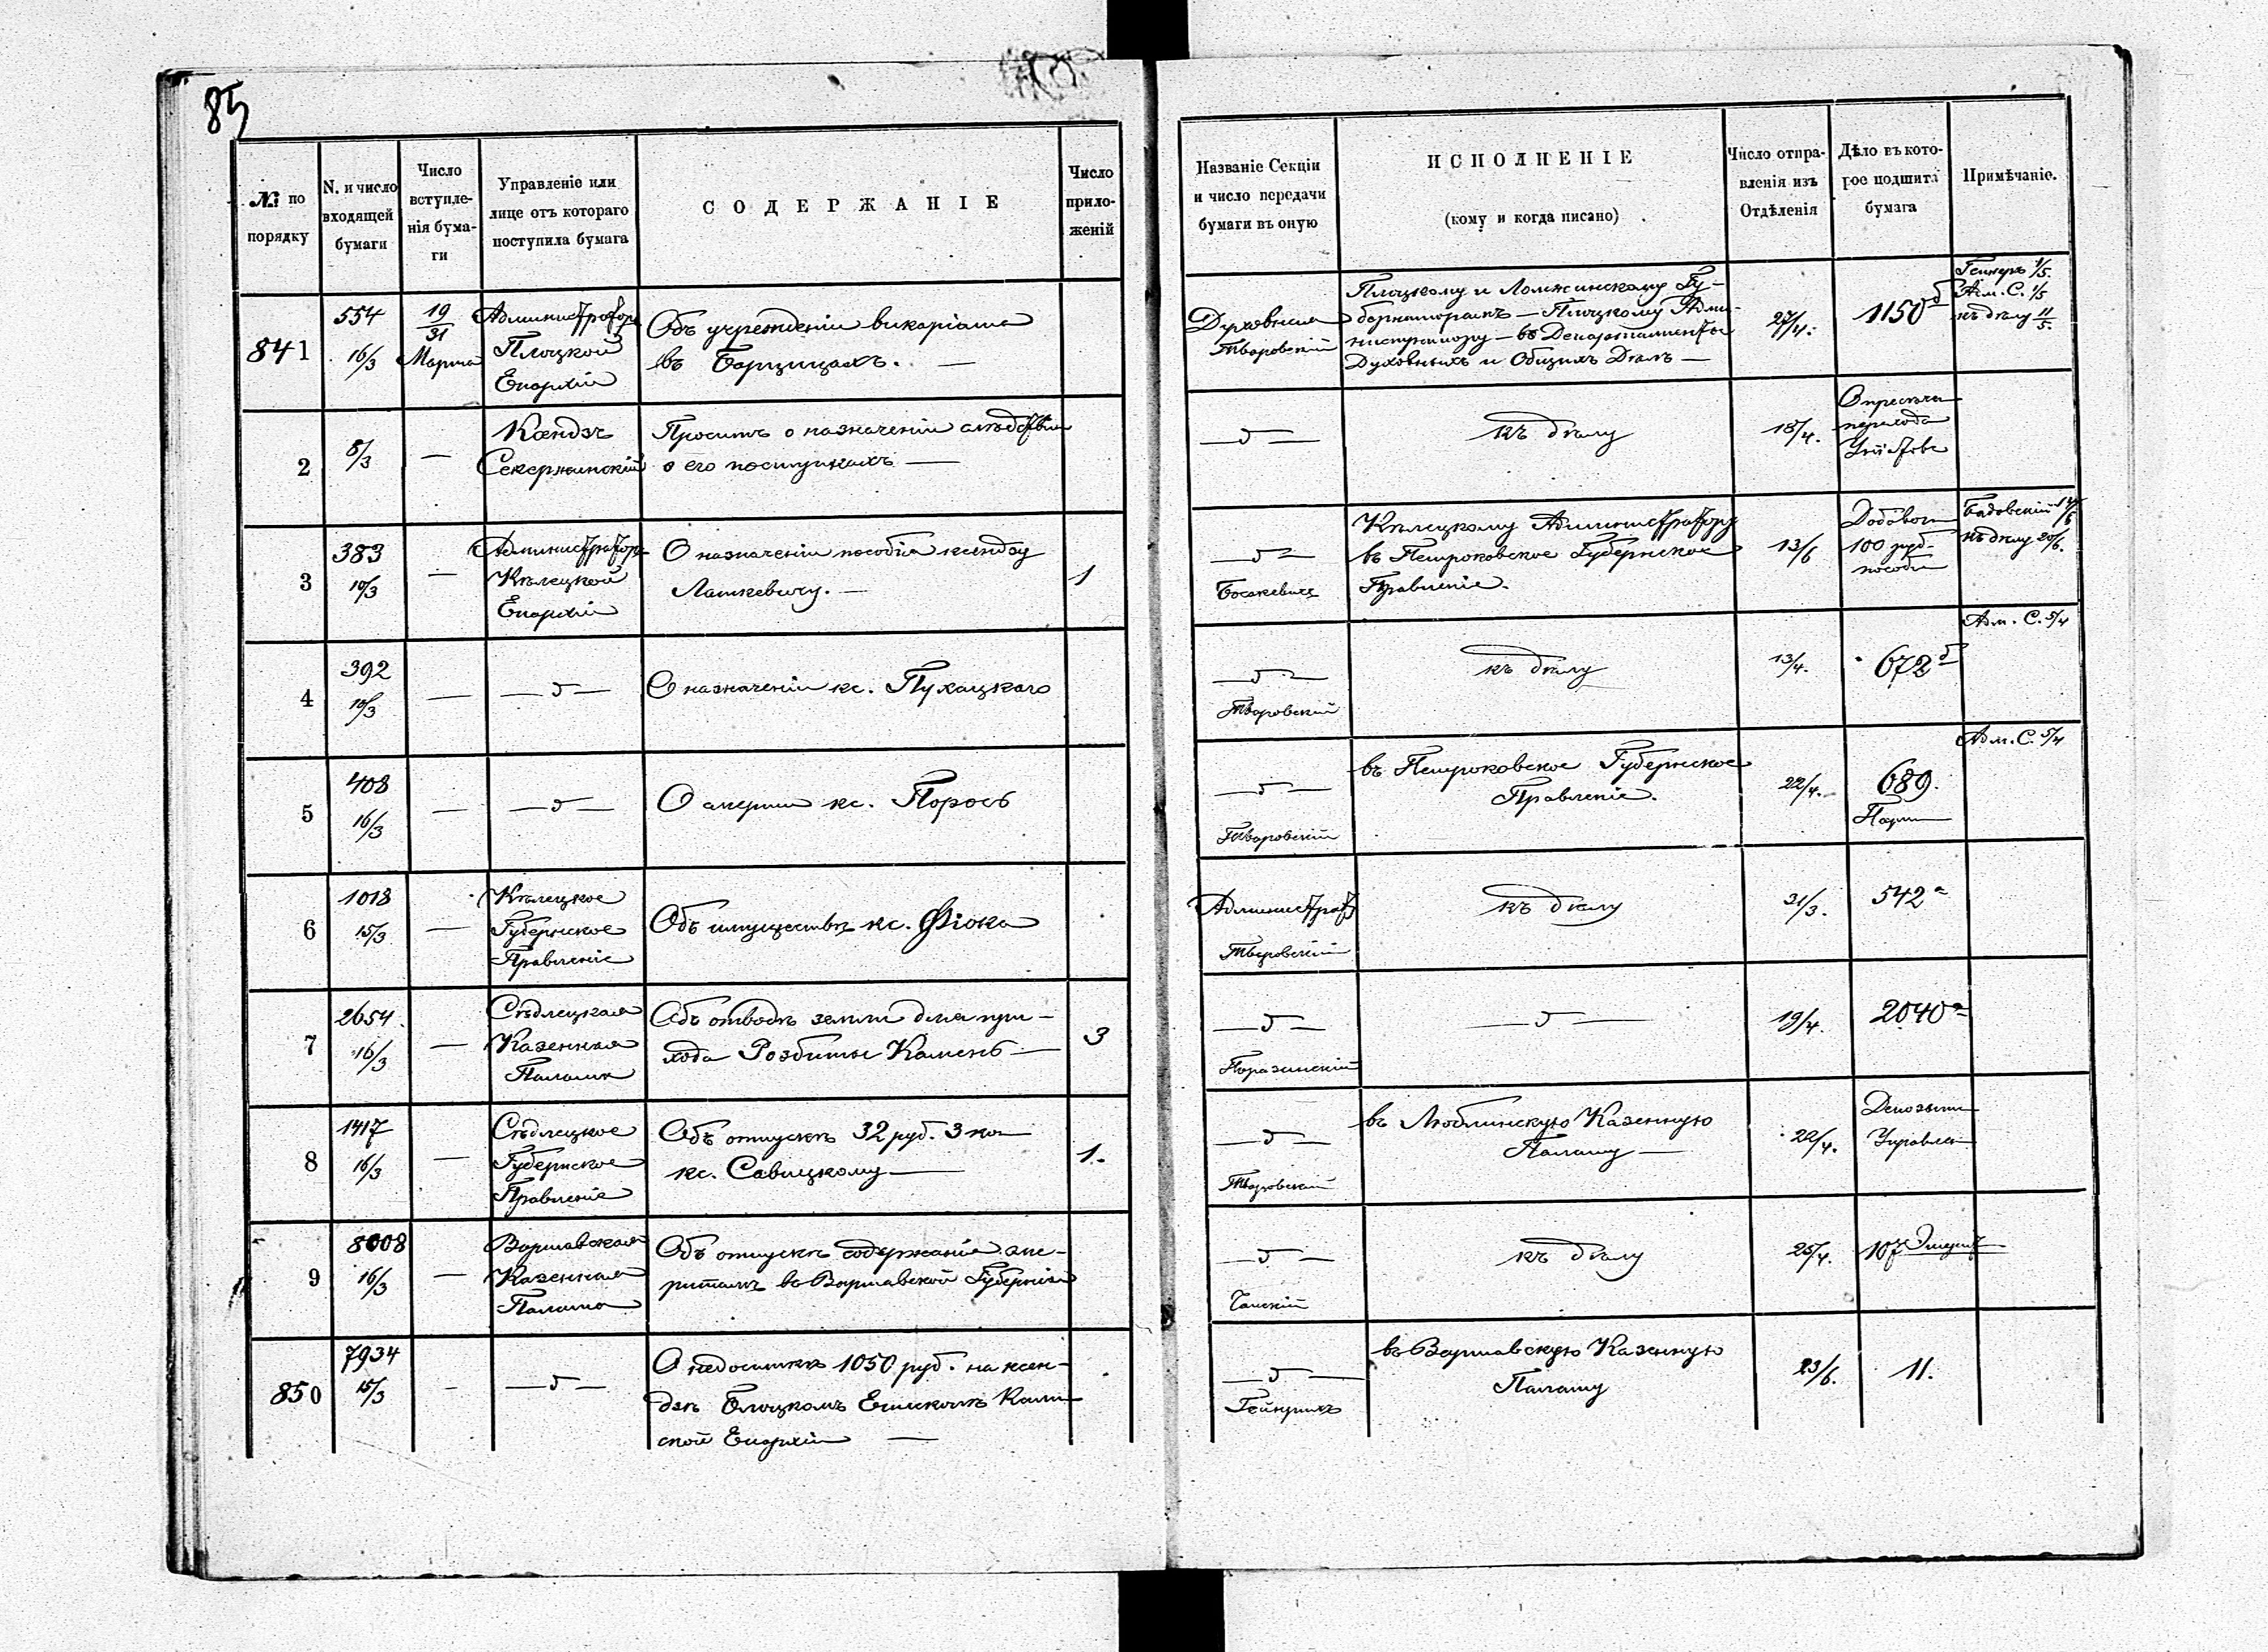 85
№ по порядку
N. и число входящей бумаги
Число вступле-
нія бума-
ги
Управленіе или
лице отъ котораго
поступила бумага
СОДЕРЖАНІЕ
Число
прило-
женій
Названіе Секціи
и число передачи
бумаги въ оную
ИСПОЛНЕНІЕ
(кому и когда писано)
Число отпра-
вленія изъ
Отдѣленія
Дѣло въ кото-
рое подшита
бумага
Примѣчаніе.
841
554
16/3
19/31
Марта
Администраторъ
Плоцкой
Епархіи
Объ учрежденіи викаріата
въ Барщицахъ. —
Духовная
Тваровскій
Плоцкому и Ломжинскому Гу-
бернаторамъ — Плоцкому Адми-
нистратору — въ Департаментъ
Духовныхъ и Общихъ Дѣлъ —
27/4.
1150 б
1/5.
Адм. С. 1/5
къ дѣлу 11/5.
2
8/3
—
Ксендзъ
Секержинскій
Проситъ о назначеніи слѣдствія
о его поступкахъ —
— „ —
къ дѣлу
18/4.
О пресѣчен
перехода
3
383
10/3
—
Администраторъ
Кѣлецкой
Епархіи
О назначеніи пособія ксендзу
Лашкевичу. —
1
— „ —
Босакевичъ
Кѣлецкому Администратору
въ Петроковское Губернское
Правленіе.
13/6
Добавоч
100 руб.
пособи
Бадовскій
къ дѣлу 20/6.
4
392
10/3
—
— „ —
О назначеніи кс. Пухацкаго
— „ —
Тваровскій
къ дѣлу
13/4.
672 б
Адм. С. 5/4
5
408
16/3
—
— „ —
О смерти кс. Порось
— „ —
Тваровскій
въ Петроковское Губернское
Правленіе.
22/4.
689.
Адм. С. 5/4
6
1018
15/3
—
Кѣлецкое
Губернское
Правленіе
Объ имуществѣ кс. Фіока
Администрат
Тваровскій
къ дѣлу
31/3.
542 а
7
2654
16/3
—
Сѣдлецкая
Казенная
Палата
Объ отводѣ земли для при-
хода Розбиты Камень —
3
— „ —
Поразинскій
— „ —
19/4.
2040 а
8
1417
16/3
—
Сѣдлецкое
Губернское
Правленіе
Объ отпускѣ 32 руб. 3 коп
кс. Савицкому —
1.
— „ —
Тваровскій
въ Люблинскую Казенную
Палату —
22/4.
Депозиты
Управлен
9
8008
16/3
—
Варшавская
Казенная
Палата
Объ отпускѣ содержанія эме-
ритамъ въ Варшавской Губерніи
— „ —
Чапскій
къ дѣлу
25/4.
107 Эмерит
850
7934
15/3
-
— „ —
О недостаткѣ 1050 руб. на ксен-
дзѣ
ской Епархіи —
— „ —
Гейнрихъ
въ Варшавскую Казенную
Палату
23/6.
11.